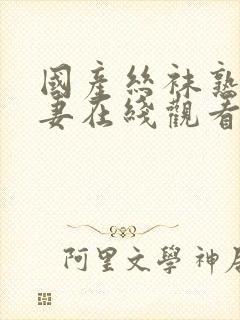 國産絲袜熟
妻在綫觀看
阿里文學神居